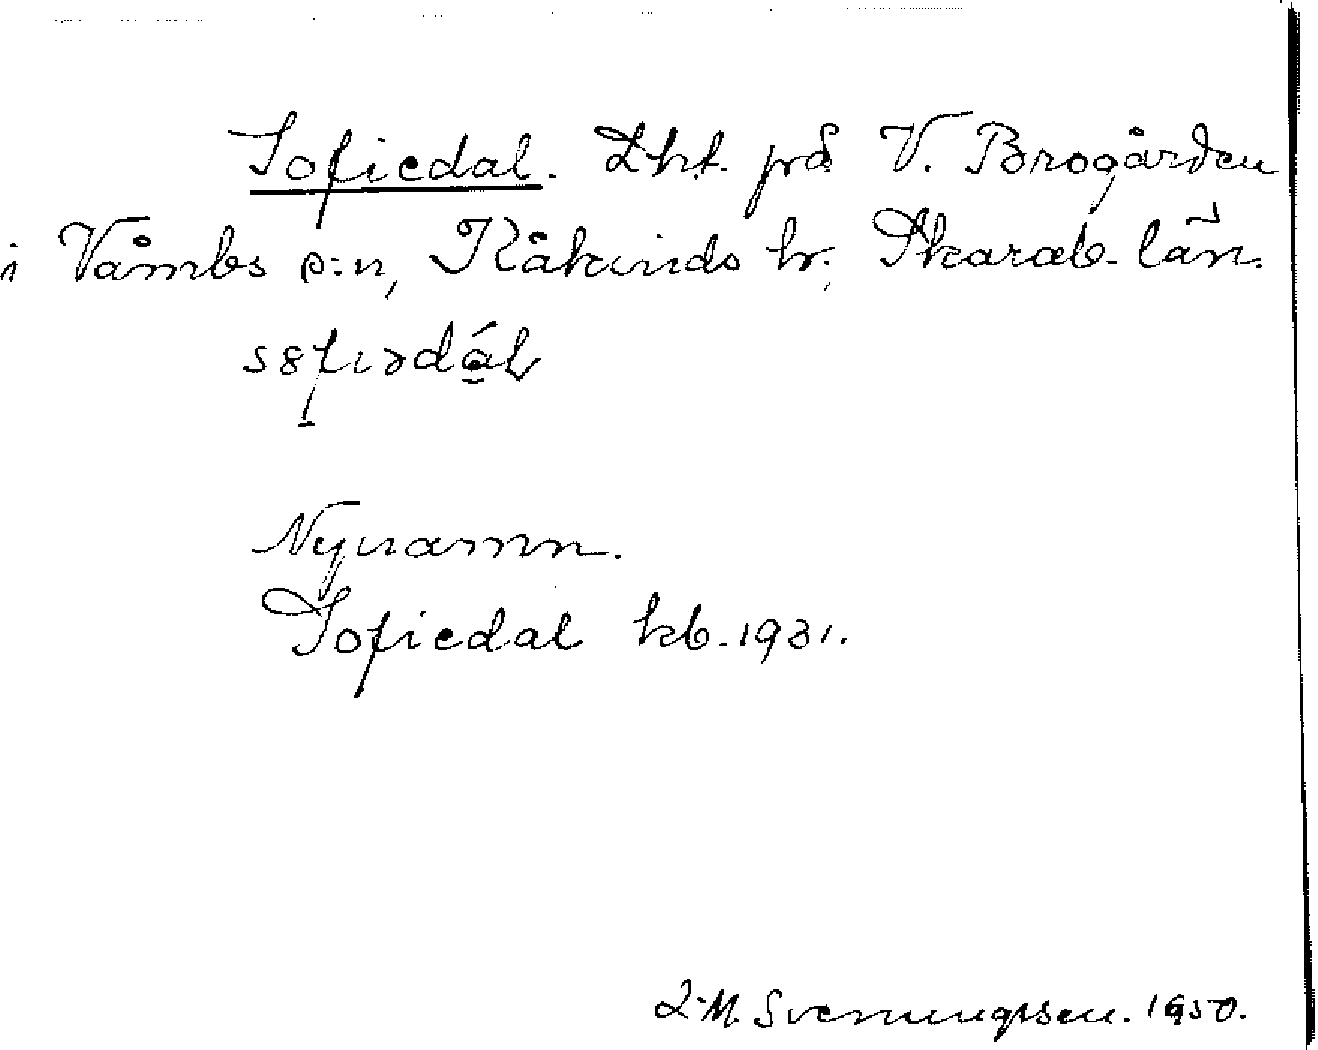 Sofiedal. Lht. på V. Brogården
i Våmbs s:n, Kåkinds hr. Skarab. län.
s8fiədál
Nynamn.
Sofiedal kb. 1931.
L-M. Svenungsson. 1950.